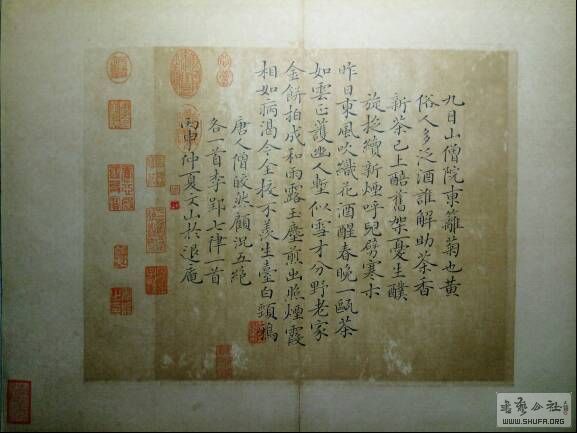 九日山僧院東籬菊也黄
俗人多泛酒誰解助茶香
新茶已上醅舊架憂生醭
旋旋續新煙呼兒劈寒木
昨日東風吹織花酒醒春晚一甌茶
如雲正護幽人塹似雪才分野老家
金餅拍成和雨露玉塵煎出照煙霞
相如病渴今全校不羨生臺白頸鴉
唐人僧皎然顧況五絕
各一首李郢七律一首
丙申仲夏文山於退庵
书艺公社
WWW.SHUFA.ORG